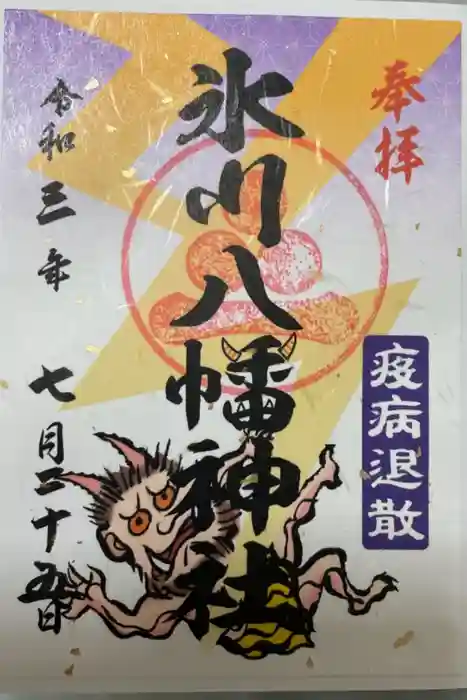 奉拝
疫病退散
氷川八幡神社
令和三年
七月二十五日